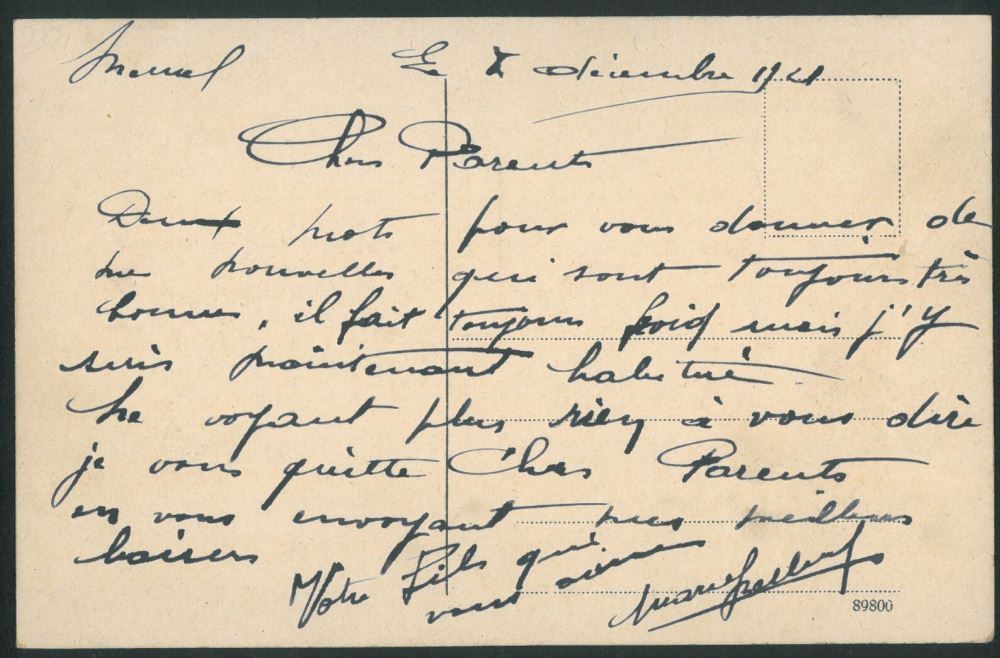 Memel Le décembre 1921
Chers Parents
Deux mots pour vous donner de
mes nouvelles qui sont toujours très
bonnes, il fait toujours froid mais j'y
suis maintenant habitué
Ne voyant plus rien à vous dire
je vous quitte Chers Parents
en vous envoyant mes meilleurs
baisers
Votre Fils qui
vous aime
89800